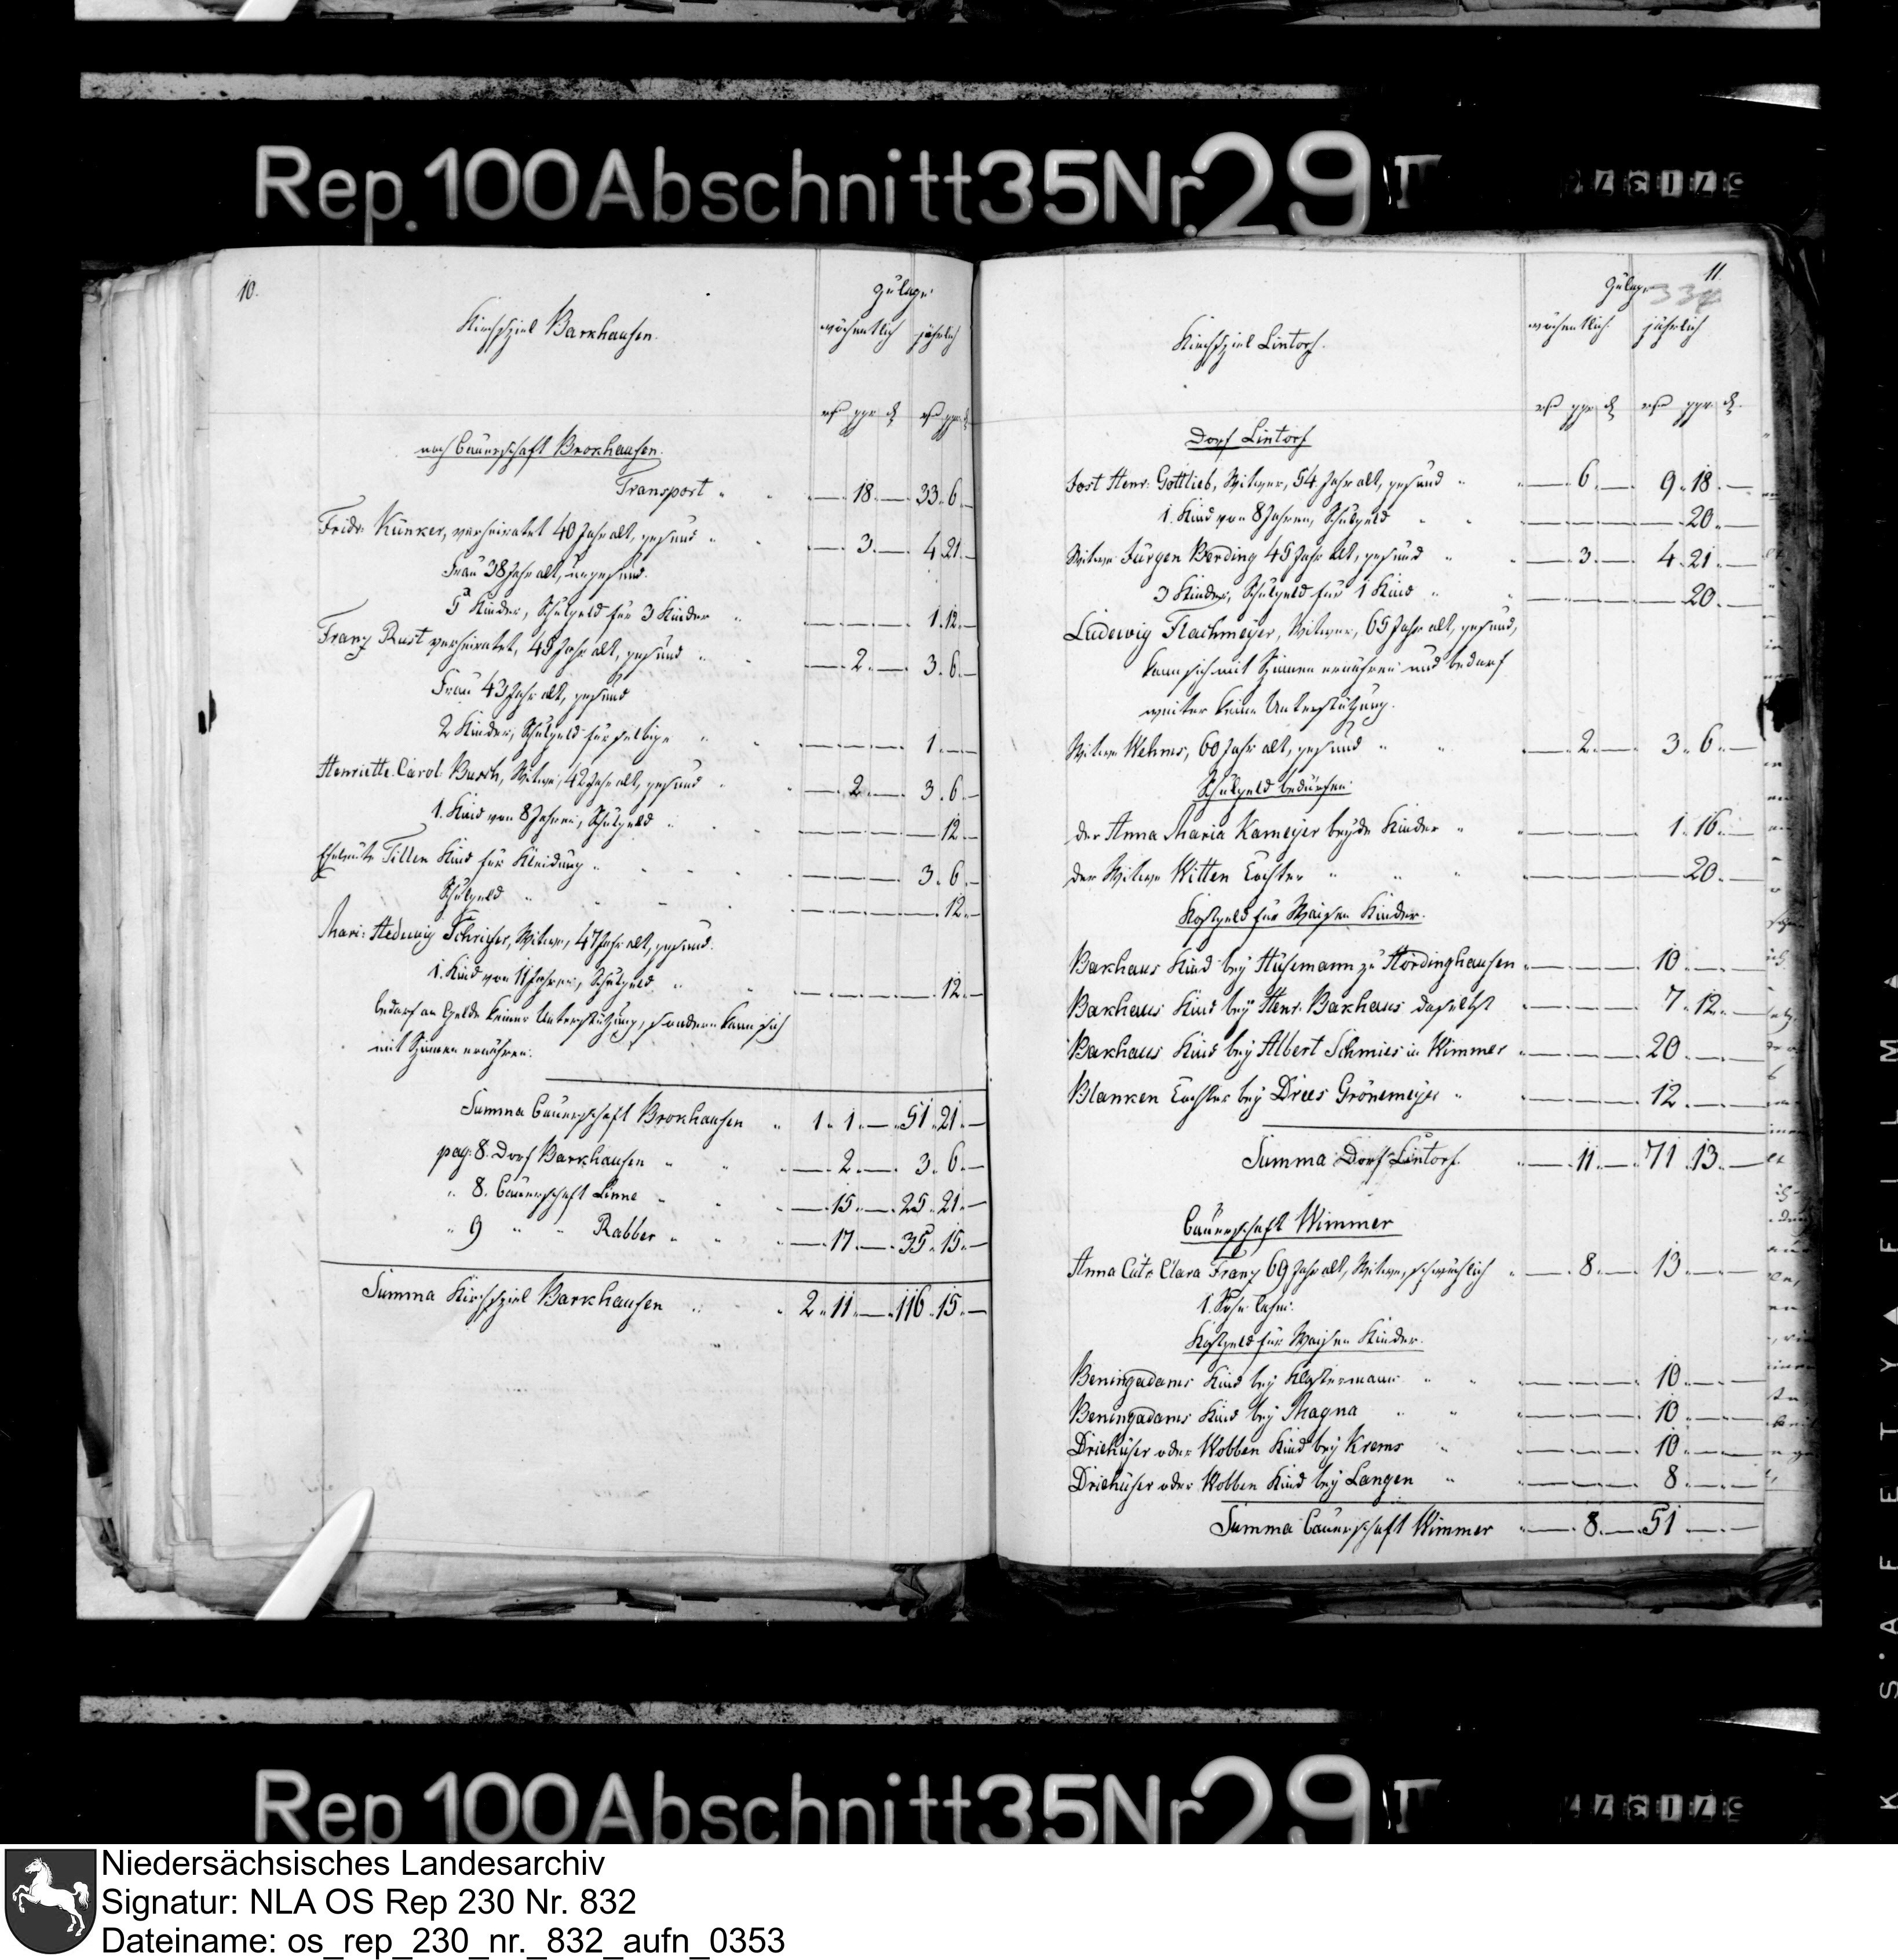 Rep. 100 Abschnitt 35 Nr. 29 II
10.
Kirchspiel Barkhausen.
Zulage
wöchentlich jährlich
noch Bauerschaft Brokhausen.
Transport 18. — 33. 6. —
Fridr: Künker, verheiratet 40 Jahr alt, gesund 3. — 4. 21. —
Frau 38 Jahr alt, ungesund.
5 Kinder, Schulgeld für 3 Kinder 1. 12. —
Franz Rust verheiratet, 48 Jahr alt, gesund 2. — 3. 6. —
Frau 43 Jahr alt, gesund
2 Kinder, Schulgeld für selbige 1. — —
Henriette Carol: Busch, Witwe, 42 Jahr alt, gesund 2. — 3. 6. —
1. Kind von 8 Jahren, Schulgeld 12. —
Eheleute Tillen Kind für Kleidung 3. 6. —
Schulgeld 12. —
Mari: Hedewig Witwe, 47 Jahr alt, gesund.
1. Kind von 11 Jahren, Schulgeld 12. —
bedarf an Gelde keiner Unterstützung, sondern kann sich
mit Spinnen ernähren.
Summa Bauerschaft Brokhausen 1. 1. — 51. 21. —
pag: 8. Dorf Barkhausen 2. — 3. 6. —
" 8. Bauerschaft Linne 15. — 25. 21. —
" 9 " " Rabber 17. — 35. 15. —
Summa Kirchspiel Barkhausen 2. 11. — 116. 15. —
11
Kirchspiel Lintorf.
Zulage
wöchentlich jährlich
Dorf Lintorf
Jost Henr: Gottlieb, Witwer, 54 Jahr alt, gesund 6. — 9. 18. —
1. Kind von 8 Jahren, Schulgeld 20. —
Witwe Jürgen Berding 45 Jahr alt, gesund 3. — 4. 21. —
3 Kinder, Schulgeld für 1 Kind 20. —
Ludewig Flachmeyer, Witwer, 65 Jahr alt, gesund,
kann sich mit Spinnen ernähren und bedarf
weiter keine Unterstützung.
Witwe Wehms, 60 Jahr alt, gesund 2. — 3. 6. —
Schulgeld bedürfen
der Anna Maria Kameyer beyde Kinder 1. 16. —
der Witwe Witten Tochter 20. —
Kostgeld für Waisen Kinder.
Barkhaus Kind bey Husemann zu Hördinghausen 10. — —
Barkhaus Kind bey Henr: Barkhaus daselbst 7. 12. —
Barkhaus Kind bey Albert Schmies in Wimmer 20. — —
Blanken Tochter bey Drees Grönemeyer 12. — —
Summa Dorf Lintorf. 11. — 71. 13. —
Bauerschaft Wimmer
Anna Catr: Clara Franz 69 Jahr alt, Witwe, schwächlich 8. — 13. — —
1. Sohn lahm.
Kostgeld für Waisen Kinder.
Beningadams Kind bey Klostermann 10. — —
Beningadams Kind bey Magna 10. — —
Driehüser oder Wobben Kind bey Krems 10. — —
Driehüser oder Wobben Kind bey Langen 8. — —
Summa Bauerschaft Wimmer 8. — 51. — —
Rep 100 Abschnitt 35 Nr 29 II
SAFETY FILM
Niedersächsisches Landesarchiv
Signatur: NLA OS Rep 230 Nr. 832
Dateiname: os_rep_230_nr._832_aufn_0353